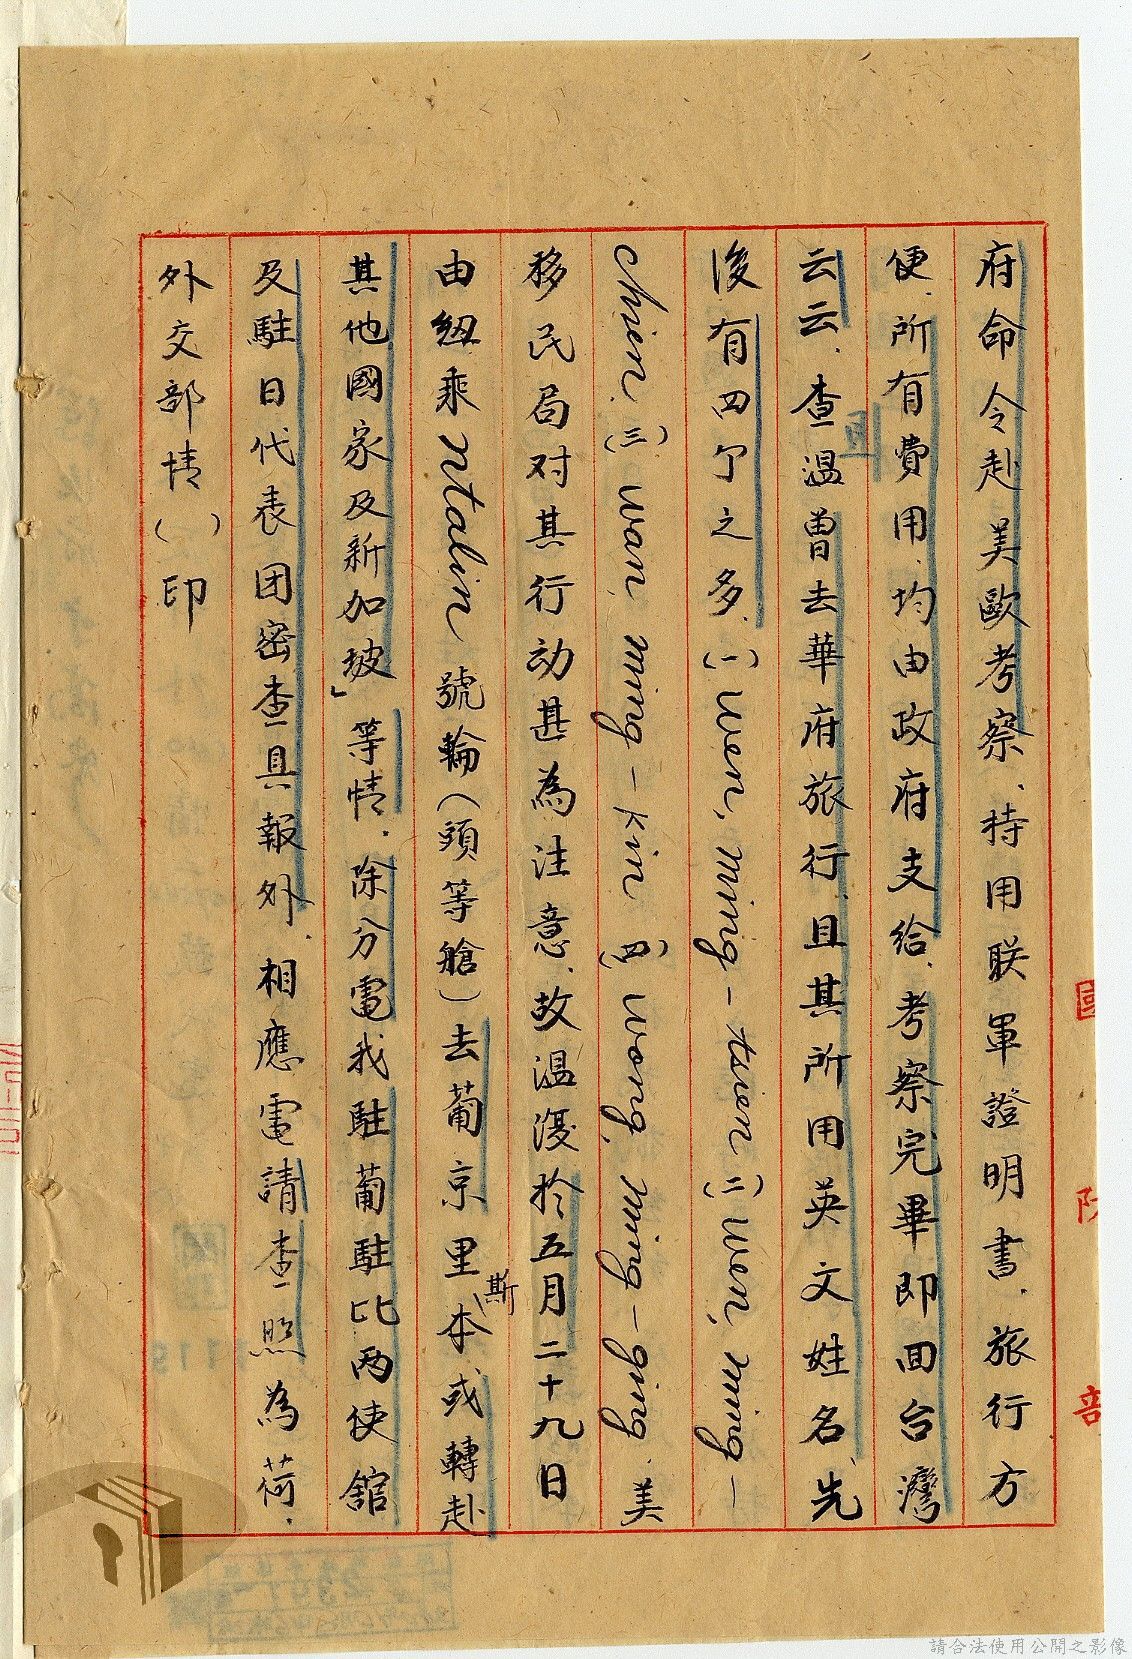 府命令赴美歐考察、持用联軍證明書、旅行方
便、所有費用、均由政府支給、考察完畢即回台灣
云云、查温曾去華府旅行、且其所用英文姓名、先
後有四个之多、(一)Wen, ming-tsien(二)Wen, ming-
chien.(三)wan, ming-kin(四)wong, ming-ging.美
移民局对其行动甚為注意、故温漫於五月二十九日
由紐乘ntalin號輪(頭等艙)去葡京里斯本或轉赴
其他國家及新加坡」等情.除分電我駐葡駐比两使舘
及駐日代表团密查具報外、相應電請查照為荷.
外交部情( )印
國防部
請合法使用公開之影像